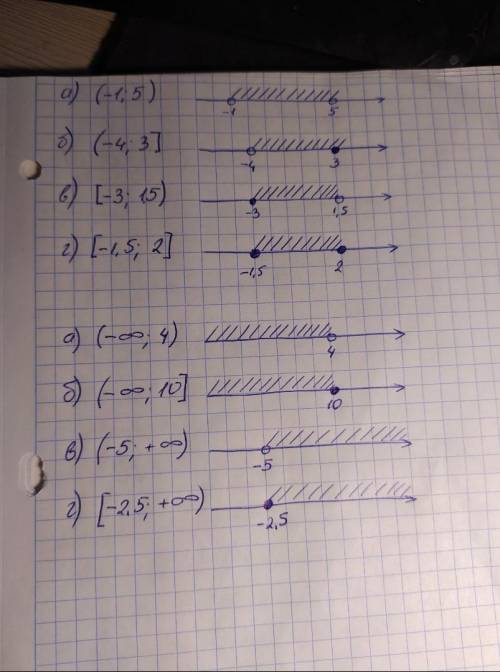 а) (-1; 5) -1 5
б) (-4; 3] -4 3
в) [-3; 1,5) -3 1,5
г) [-1,5; 2] -1,5 2
а) (-∞; 4) 4
б) (-∞; 10] 10
в) (-5; +∞) -5
г) [-2,5; +∞) -2,5